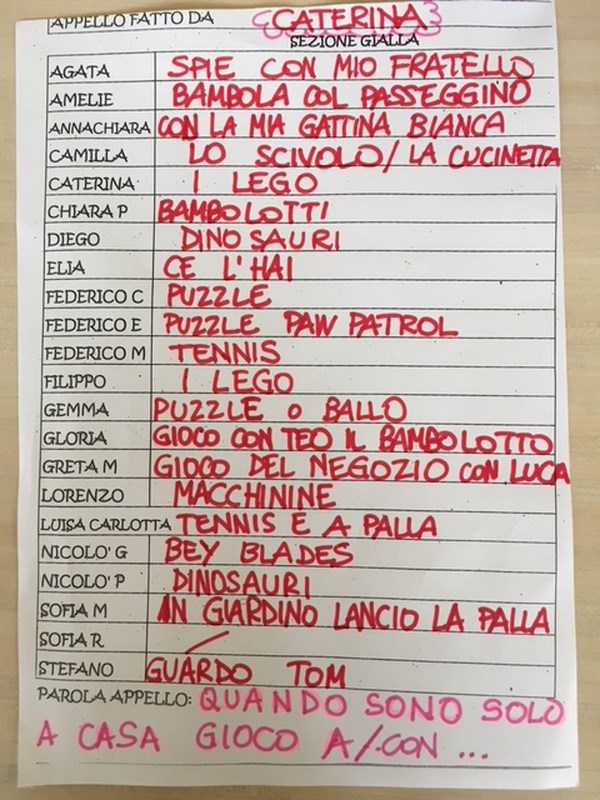 APPELLO FATTO DA CATERINA
SEZIONE GIALLA
AGATA SPIE CON MIO FRATELLO
AMELIE BAMBOLA COL PASSEGGINO
ANNACHIARA CON LA MIA GATTINA BIANCA
CAMILLA LO SCIVOLO/LA CUCINETTA
CATERINA I LEGO
CHIARA P BAMBOLOTTI
DIEGO DINOSAURI
ELIA CE L'HAI
FEDERICO C PUZZLE
FEDERICO E PUZZLE PAW PATROL
FEDERICO M TENNIS
FILIPPO I LEGO
GEMMA PUZZLE O BALLO
GLORIA GIOCO CON TEO IL BAMBOLOTTO
GRETA M GIOCO DEL NEGOZIO CON LUCA
LORENZO MACCHININE
LUISA CARLOTTA TENNIS E A PALLA
NICOLO' G BEY BLADES
NICOLO' P DINOSAURI
SOFIA M IN GIARDINO LANCIO LA PALLA
SOFIA R /
STEFANO GUARDO TOM
PAROLA APPELLO: QUANDO SONO SOLO
A CASA GIOCO A/CON ...